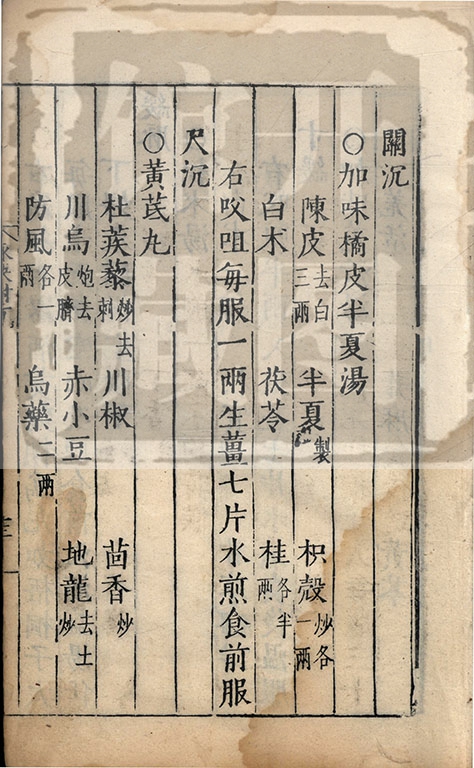 關沉
○加味橘皮半夏湯
陳皮去白三兩 半夏製 枳殼炒各一兩
白朮 茯苓 桂各半兩
右㕮咀每服一兩生薑七片水煎食前服
尺沉
○黃芪丸
杜蒺藜炒去刺 川椒 茴香炒
川烏炮去皮臍 赤小豆 地龍去土炒
防風各一兩 烏藥二兩